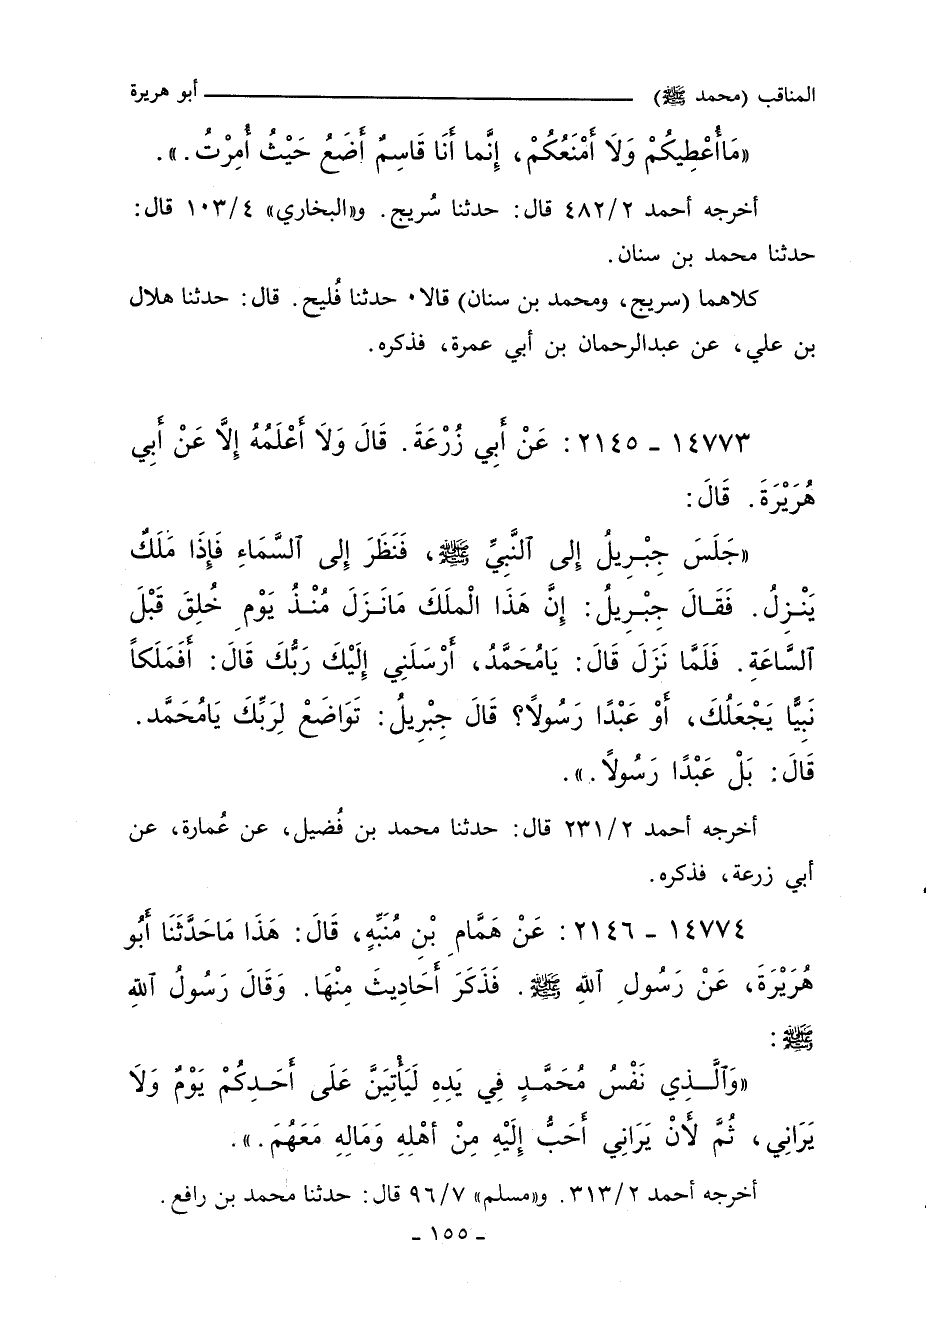 المناقب (محمد ﷺ) ــــــــــ أبو هريرة
«مَاأُعْطِيكُمْ وَلَا أَمْنَعُكُمْ، إِنَّما أَنَا قَاسِمٌ أَضَعُ حَيْثُ أُمِرْتُ.».
أخرجه أحمد ٤٨٢/٢ قال: حدثنا سُريج. و«البخاري» ١٠٣/٤ قال:
حدثنا محمد بن سنان.
كلاهما (سريج، ومحمد بن سنان) قالا٠ حدثنا فُليح. قال: حدثنا هلال
بن علي، عن عبدالرحمان بن أبي عمرة، فذكره.
١٤٧٧٣ ـ ٢١٤٥: عَنْ أَبِي زُرْعَةَ. قَالَ وَلَا أَعْلَمُهُ إِلَّا عَنْ أَبِي
هُرَيْرَةَ. قَالَ:
«جَلَسَ جِبْرِيلُ إِلى ٱلنَّبِيِّ ﷺ، فَنَظَرَ إِلى ٱلسَّمَاءِ فَإِذَا مَلَكٌ
يَنْزِلُ. فَقَالَ جِبْرِيلُ: إِنَّ هَذَا الْملَكَ مَانَزَلَ مُنْذُ يَوْمِ خُلِقَ قَبْلَ
ٱلسَّاعَةِ. فَلَمَّا نَزَلَ قَالَ: يَامُحَمَّدُ، أَرْسَلَنِي إِلَيْكَ رَبُّكَ قَالَ: أَفَمَلَكاً
نَبِيًّا يَجْعَلُكَ، أَوْ عَبْدًا رَسُولاً؟ قَالَ جِبْرِيلُ: تَوَاضَعْ لِرَبِّكَ يَامُحَمَّد.
قَالَ: بَلْ عَبْدًا رَسُولاً.».
أخرجه أحمد ٢٣١/٢ قال: حدثنا محمد بن فُضيل، عن عُمارة، عن
أبي زرعة، فذكره.
١٤٧٧٤ ـ ٢١٤٦: عَنْ هَمَّامِ بْنِ مُنَبِّهٍ، قَالَ: هَذَا مَاحَدَّثَنَا أَبُو
هُرَيْرَةَ، عَنْ رَسُولِ ٱللهِ ﷺ. فَذَكَرَ أَحَادِيثَ مِنْهَا. وَقَالَ رَسُولُ ٱللهِ
ﷺ:
«وَٱلَّذِي نَفْسُ مُحَمَّدٍ فِي يَدِهِ لَيَأْتِيَنَّ عَلَى أَحَدِكُمْ يَوْمٌ وَلَا
يَرَانِي، ثُمَّ لَأَنْ يَرَانِي أَحَبُّ إِلَيْهِ مِنْ أَهْلِهِ وَمَالِهِ مَعَهُمْ.».
أخرجه أحمد ٣١٣/٢. و«مسلم» ٩٦/٧ قال: حدثنا محمد بن رافع.
ـ ١٥٥ ـ